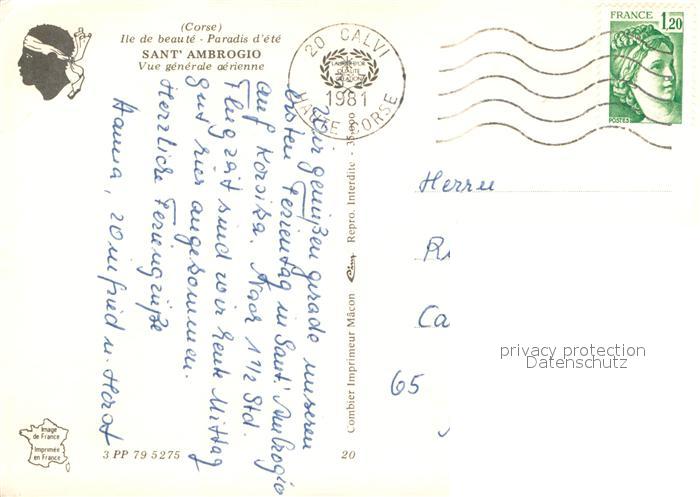 (Corse)
Ile de beauté - Paradis d'été
SANT' AMBROGIO
Vue générale aérienne
20 CALVI
1981
HAUTE CORSE
FRANCE
1,20
POSTES
Wir genießen gerade unseren
ersten Ferientag in Sant' Ambrogio
auf Korsika. Nach 1 1/2 Std.
Flugzeit sind wir heute Mittag
gut hier angekommen.
Herzliche Feriengrüße
Hanna, Winfried u. Horst
Combier Imprimeur Mâcon Cim Repro. Interdite - 35.000
Herrn
R
Ca
65
privacy protection
Datenschutz
Image
de France
Imprimée
en France
3 PP 79 5275
20